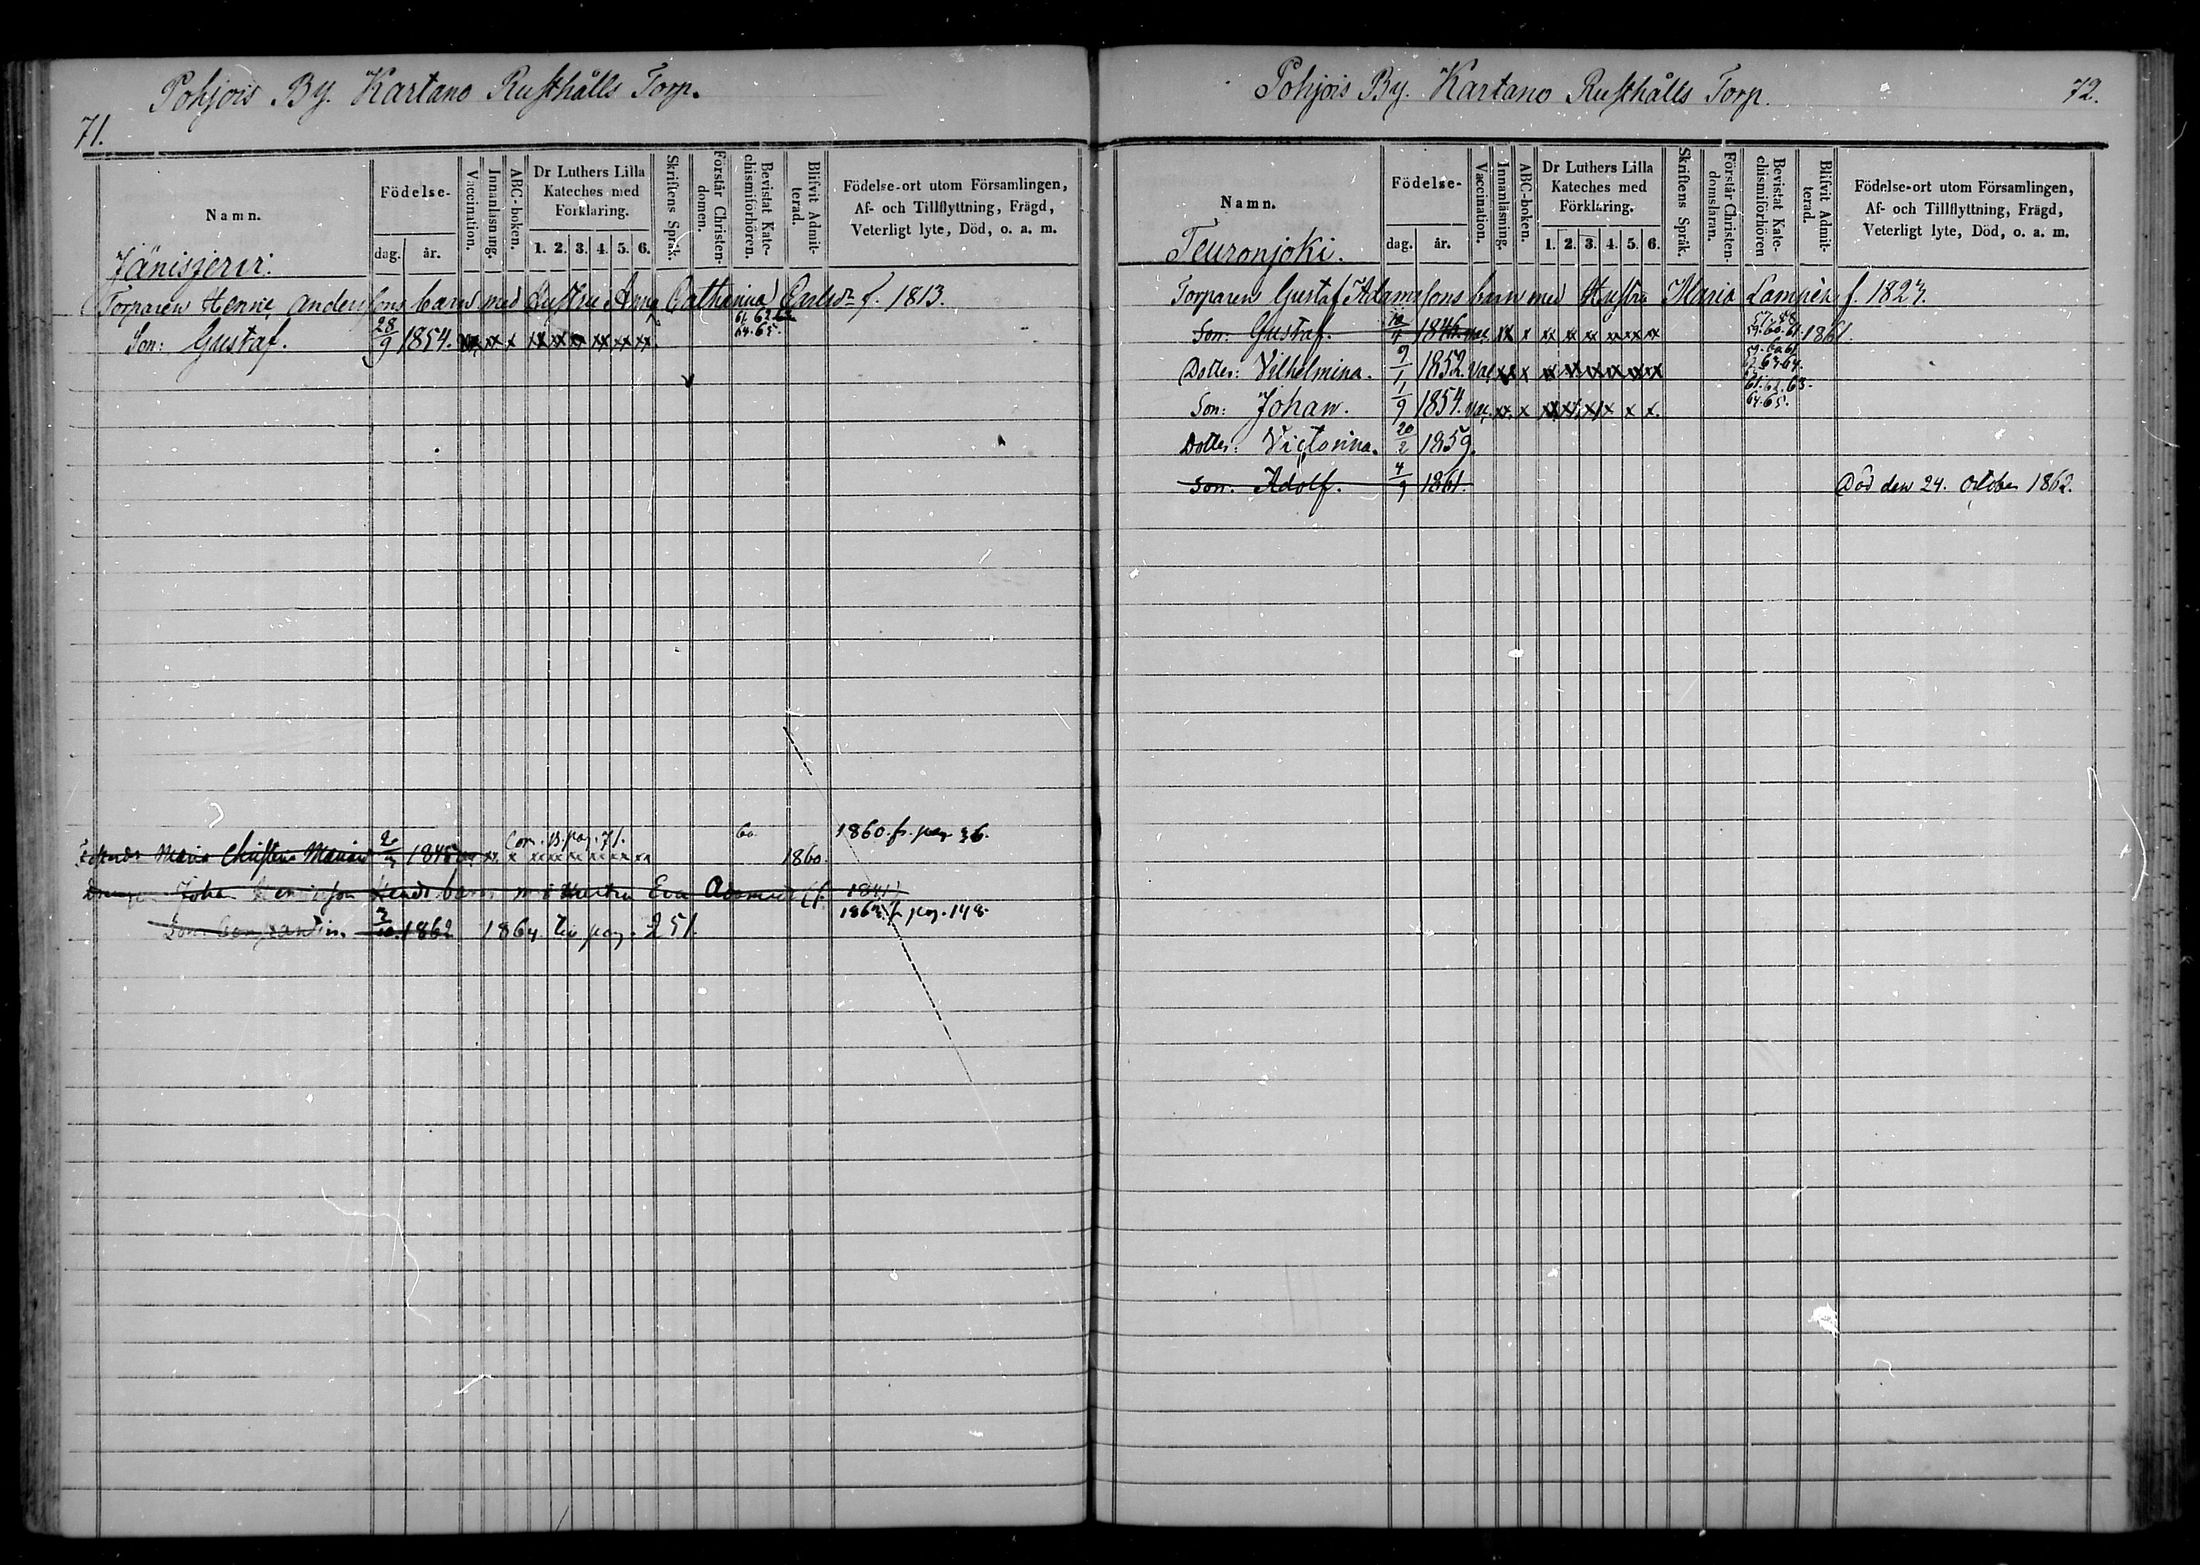 Pohjois By. Kartano Rusthålls Torp.
71.
Namn.
Födelse-
dag. år.
Vaccination.
Innanläsning.
ABC-boken.
Dr Luthers Lilla
Kateches med
Förklaring.
1. 2. 3. 4. 5. 6.
Skriftens Språk.
Förstår Christen-
domen.
Bevistat Kate-
chismiförhören.
Blifvit Admit-
terad.
Födelse-ort utom Församlingen,
Af- och Tillflyttning, Frägd,
Veterligt lyte, Död, o. a. m.
Torparen Henric Anderssons barn med Hustru Anna Catharina Carlsdr f. 1813.
61. 62. 63.
Son: Gustaf. 28/9 1854. xx x xx xx xx xx xx xx 64. 65.
60. 1860. fr. pag. 36.
Maria Christina 1845 xx x xx xx xx xx xx xx 1860.
Johan barn Hustru Eva (f. 1841)
186 fr pag. 148.
Son 1862 1864. till pag. 251.
Pohjois By. Kartano Rusthålls Torp.
72.
Namn.
Födelse-
dag. år.
Vaccination.
Innanläsning.
ABC-boken.
Dr Luthers Lilla
Kateches med
Förklaring.
1. 2. 3. 4. 5. 6.
Skriftens Språk.
Förstår Christen-
domsläran.
Bevistat Kate-
chismiförhören
Blifvit Admit-
terad.
Födelse-ort utom Församlingen,
Af- och Tillflyttning, Frägd,
Veterligt lyte, Död, o. a. m.
Teuronjoki.
Torparen Gustaf Adamssons barn med Hustru Maria Lampèn f. 1827.
57. 58.
Son: Gustaf. 1846. vac. xx x x x x x x x 59. 60. 61. 1861.
59. 60. 61.
Dotter: Vilhelmina. 9/1 1852. vac. xx x xx xx xx xx xx xx 62. 63. 64.
61. 62. 63.
Son: Johan. 1/9 1854. vac. xx. x xx xx xx x x x. 64. 65.
Dotter: Victorina. 20/2 1859.
Son: Adolf. 4/9 1861. Död den 24. October 1862.